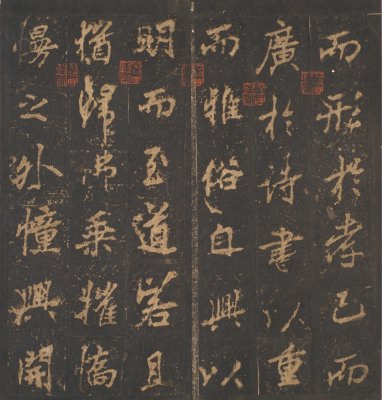 而形於孝己而
廣於詩書以重
而雅俗自興以
明而至道若且
猶歸乘摧憍
慢之外幢興開